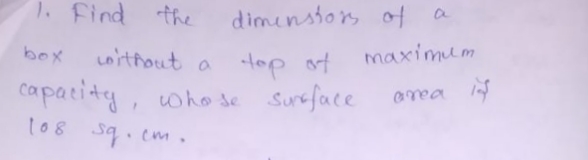 1. Find the dimensions of a
box without a top of maximum
capacity, whose surface area if
108 sq. cm.